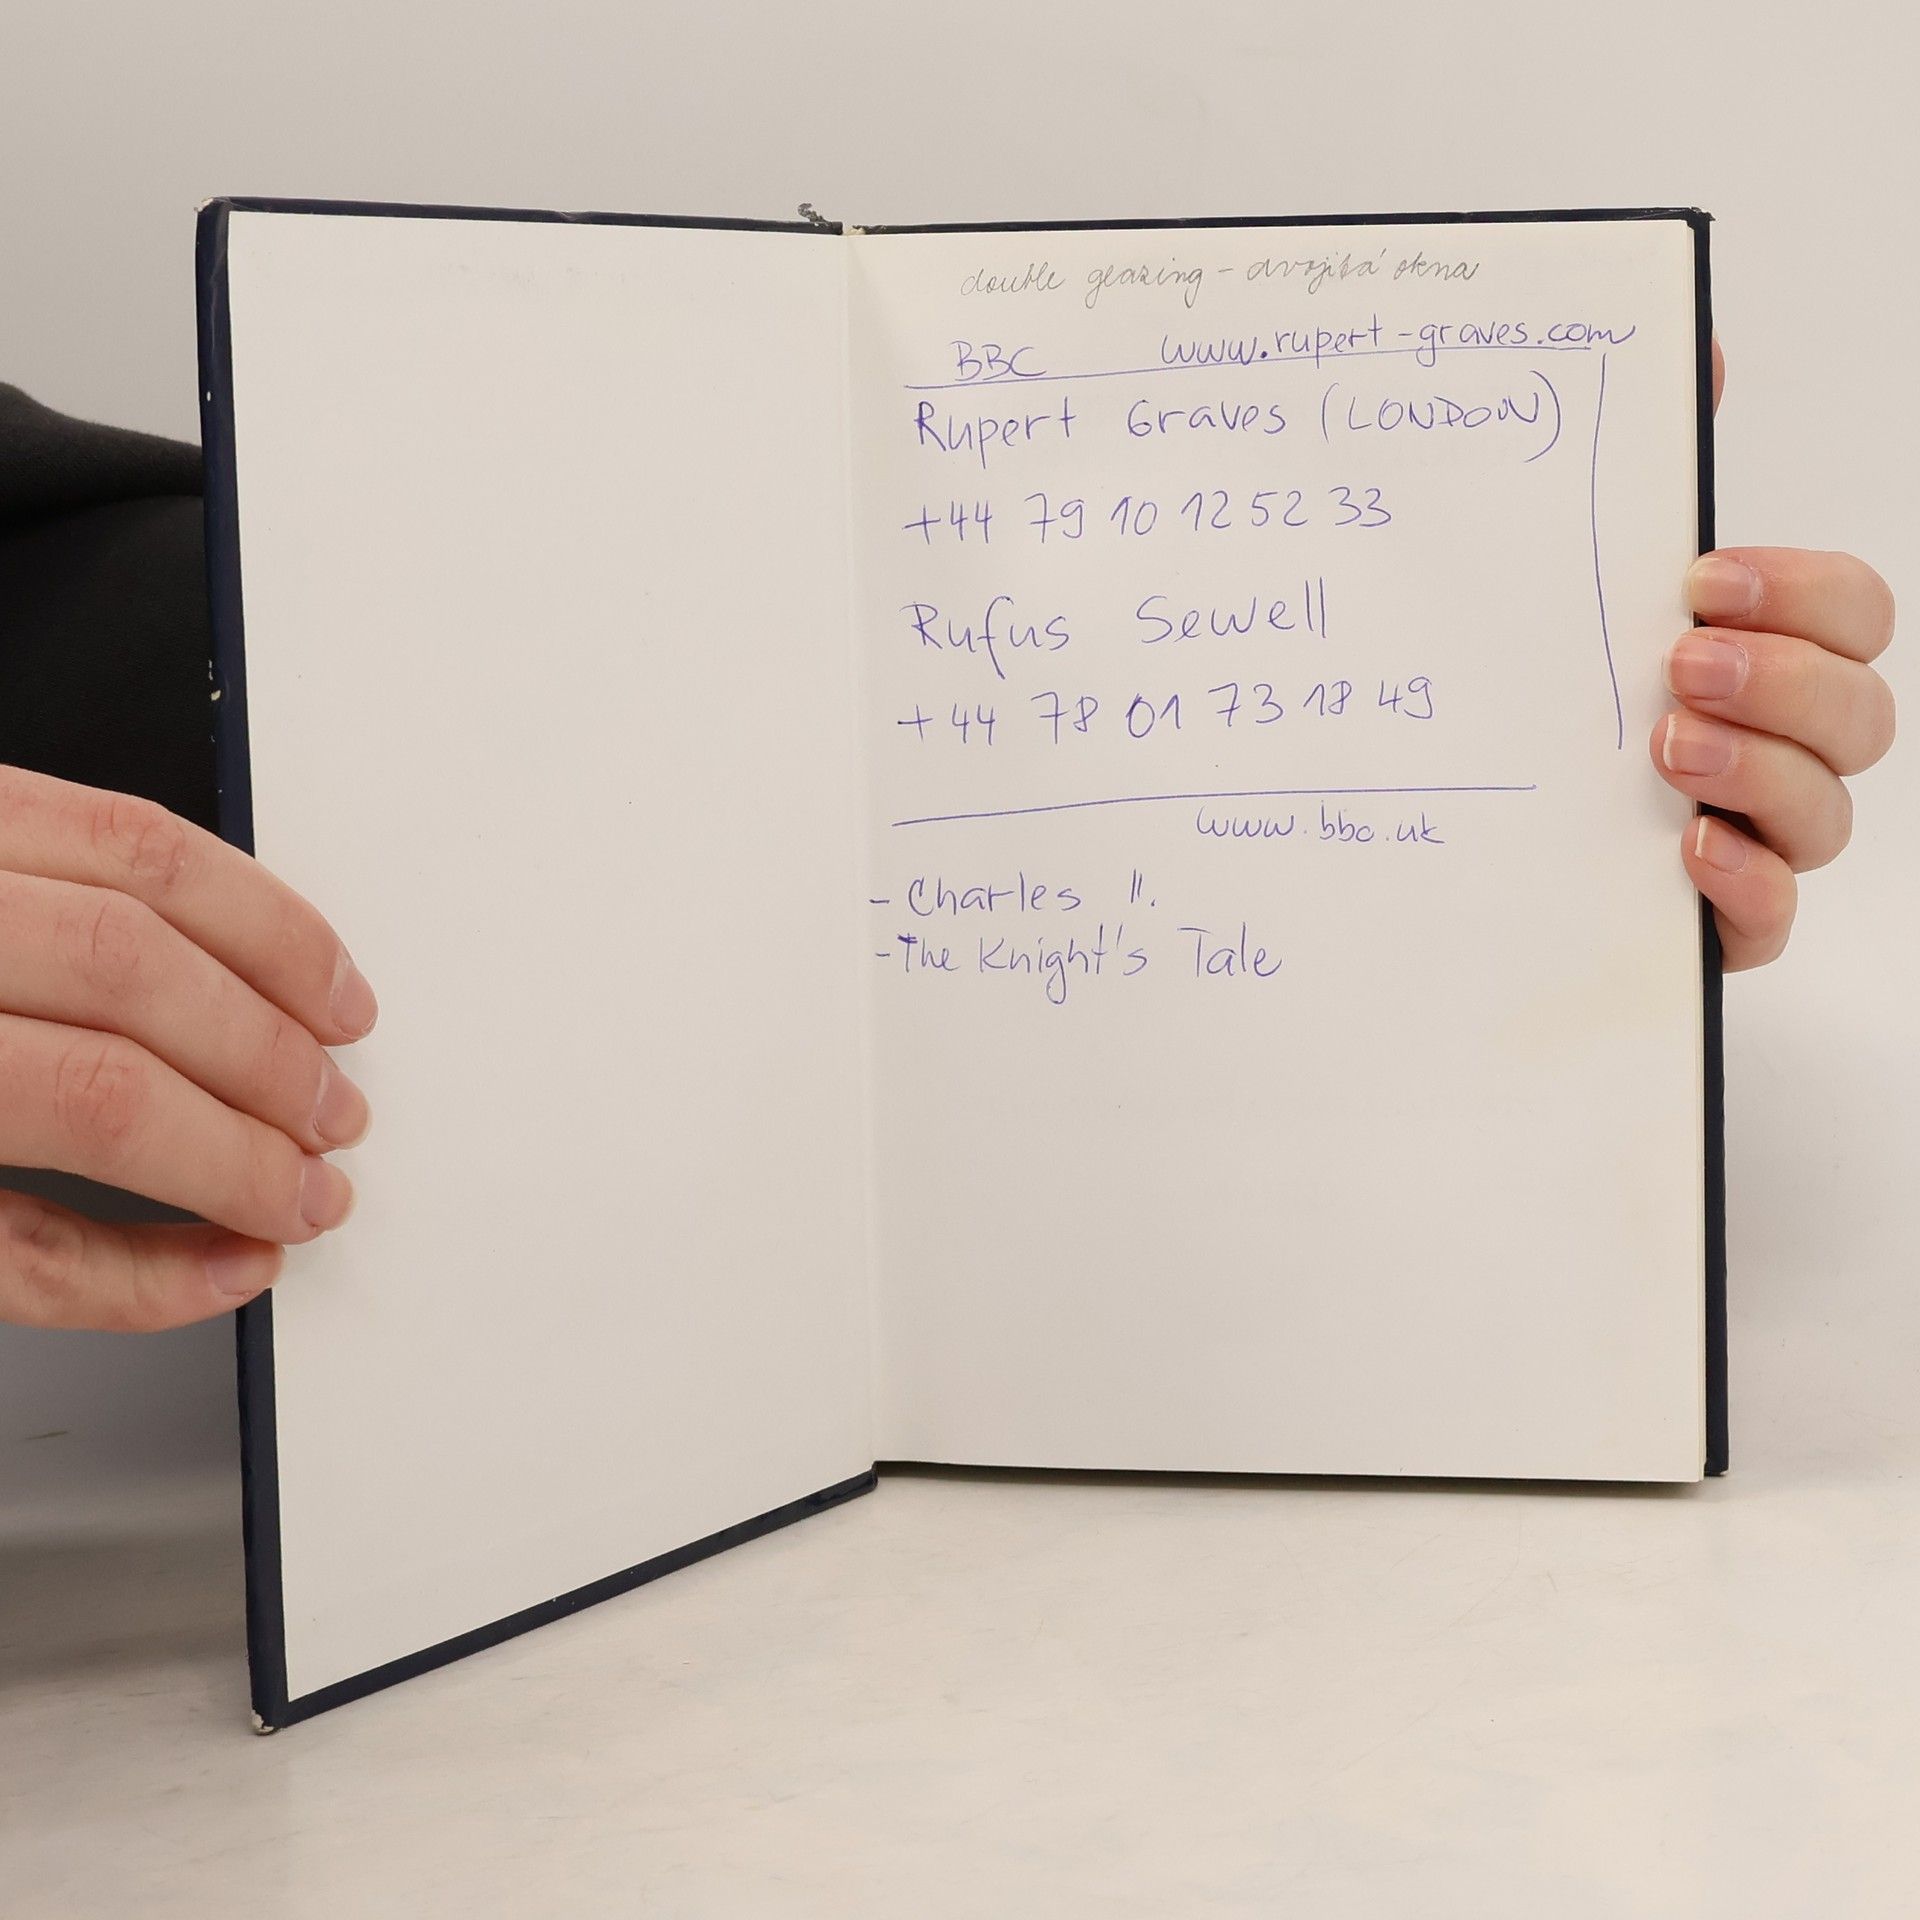 double glazing - dvojitá okna
BBC www.rupert-graves.com
Rupert Graves (LONDON)
+44 79 10 12 52 33
Rufus Sewell
+44 78 01 73 18 49
www.bbc.uk
- Charles II.
- The Knight's Tale